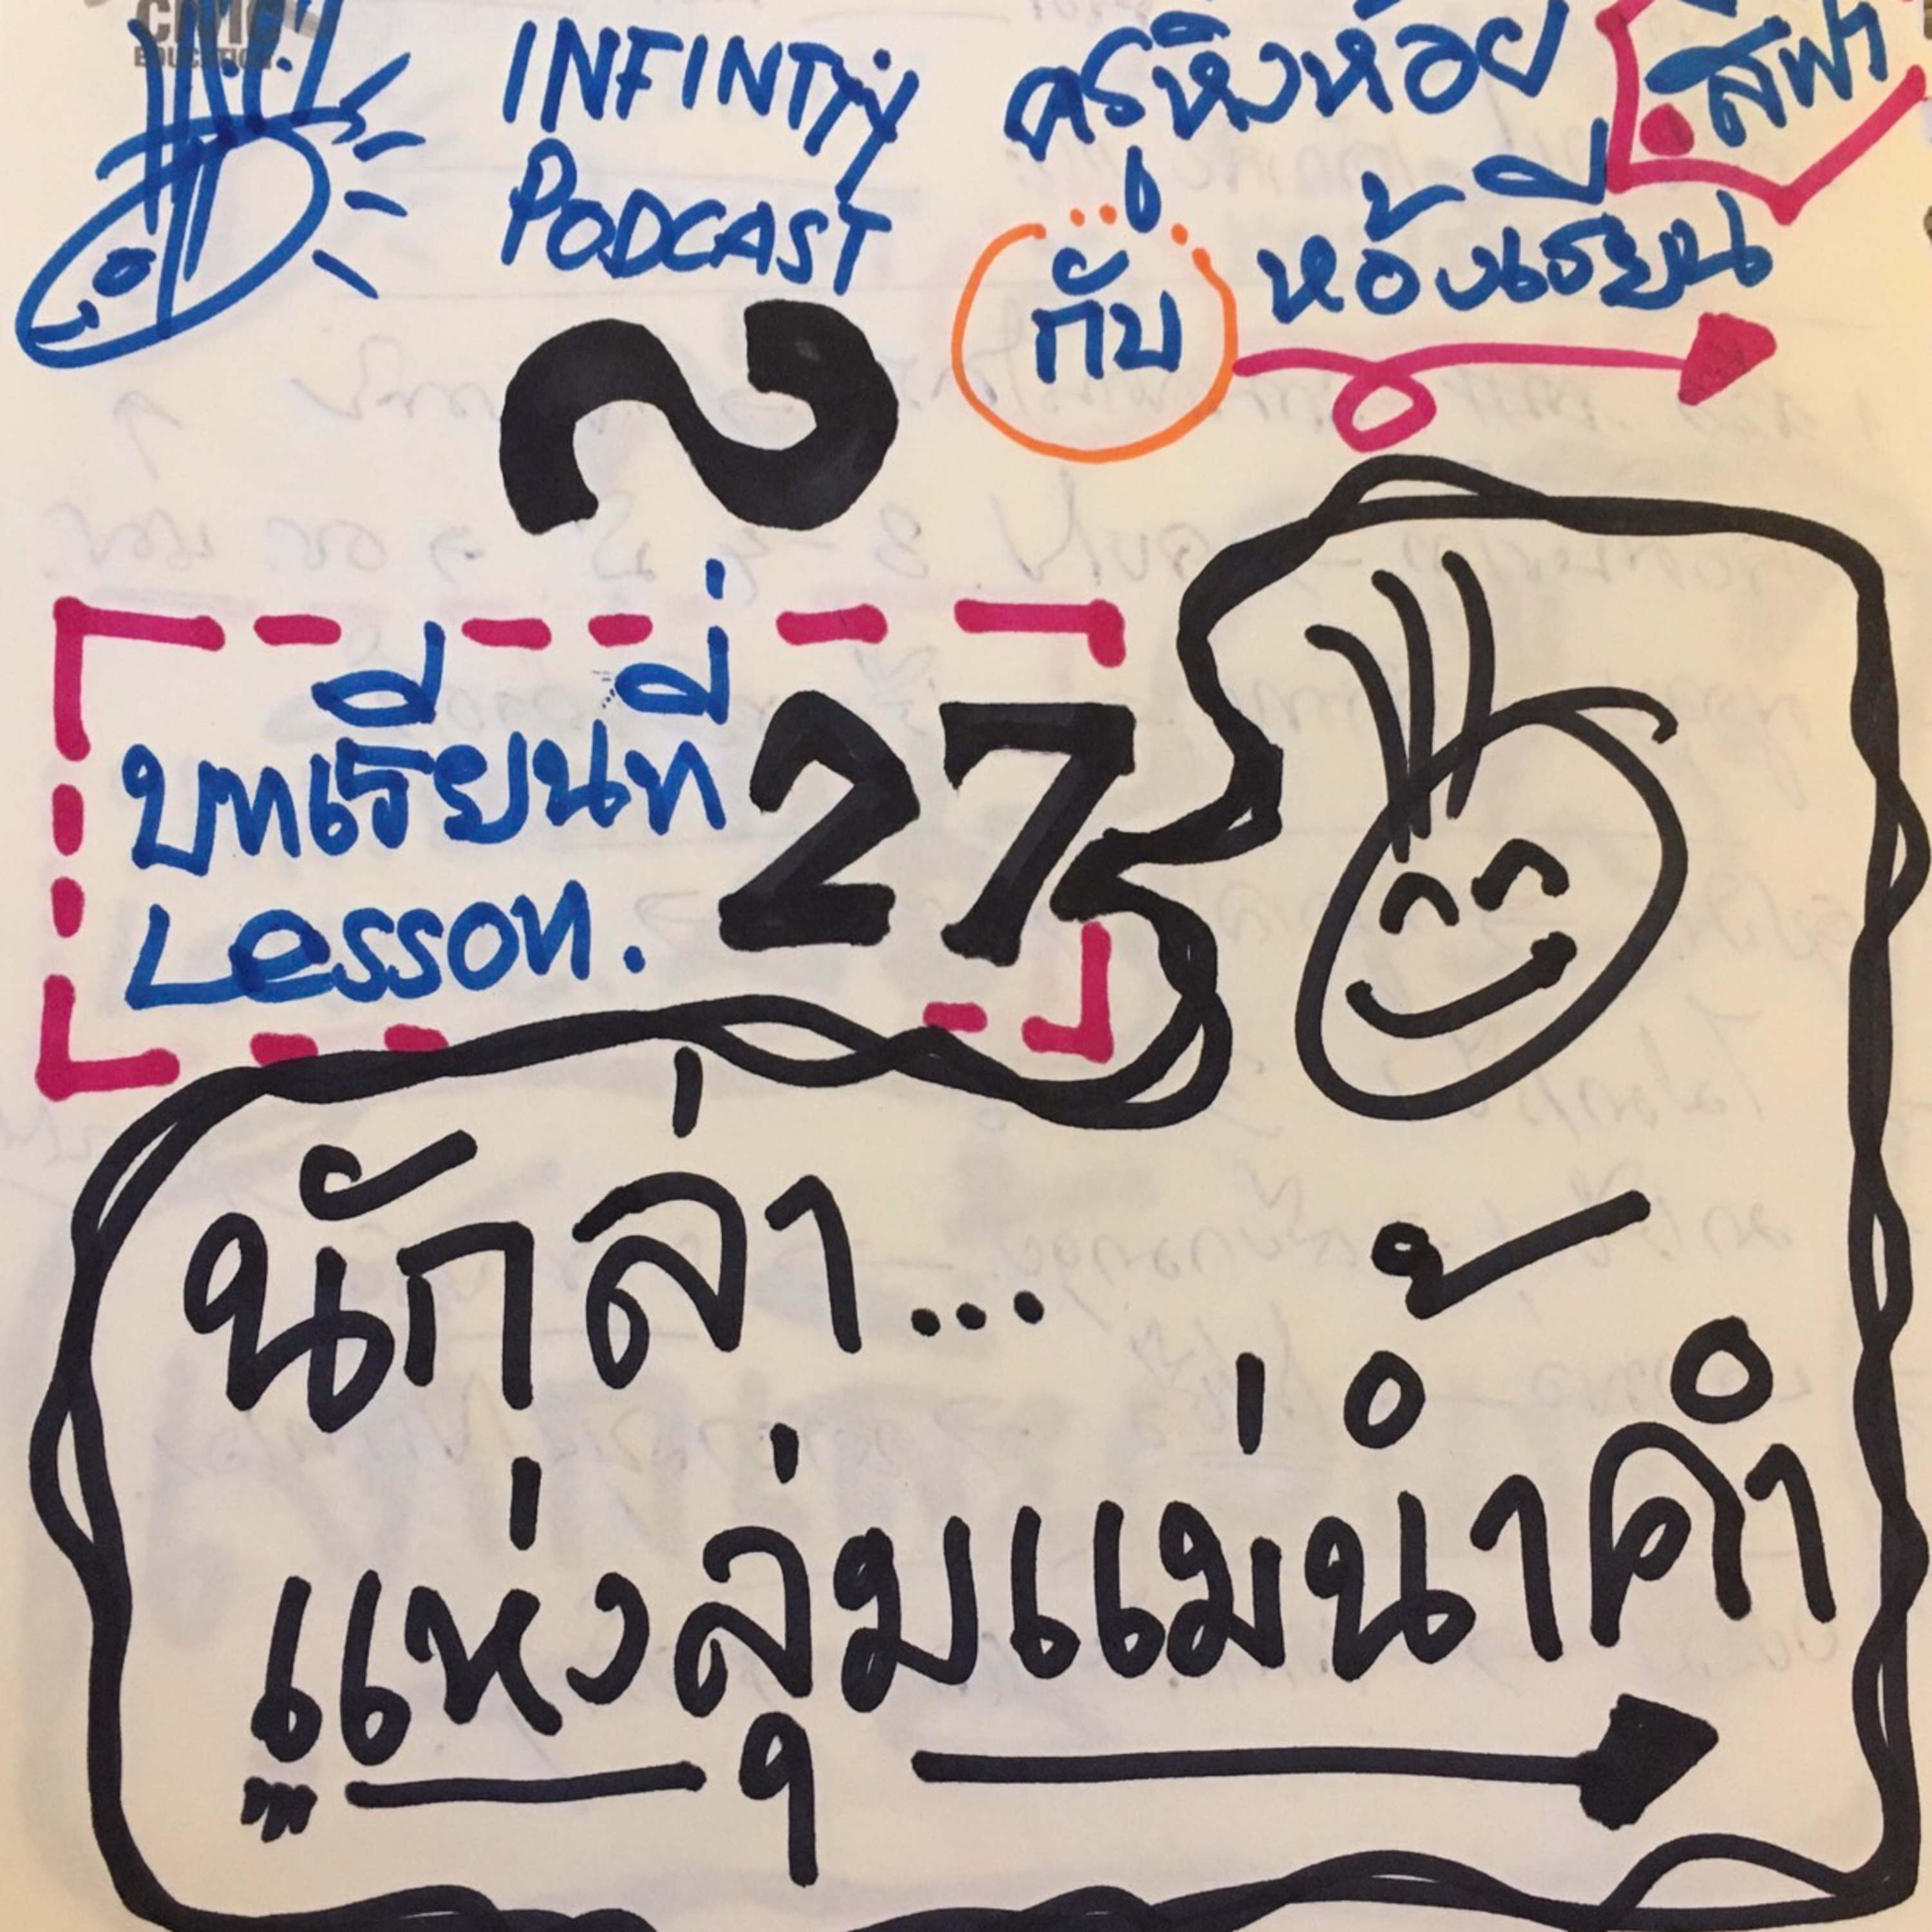 CIVIC
EDUCATION
INFINTy
PODCAST
ครูหิ่งห้อย สีฟ้า
กับ ห้องเรียน
บทเรียนที่ 27
Lesson.
นักล่า...
แห่งลุ่มแม่น้ำคำ